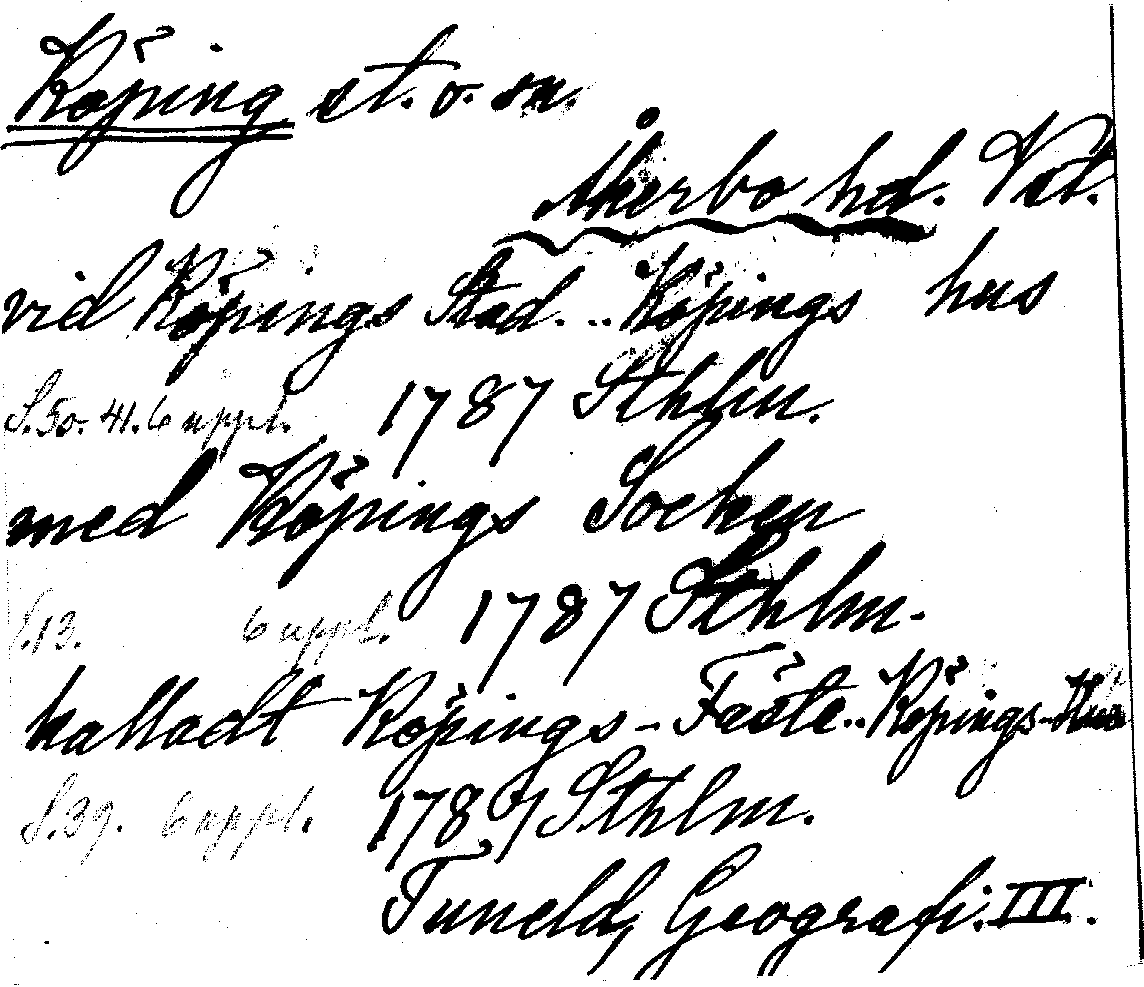 Köping st. o. sn.
Åkerbo hd. Vstl.
vid Köpings Stad. .. Köpings hus
S. 50. 41. 6 uppl. 1787 Sthlm.
med Köpings Socken
S. 13. 6 uppl. 1787 Sthlm.
kalladt Köpings-Fäste .. Köpings-Hus
S. 39. 6 uppl. 1787 Sthlm.
Tuneld, Geografi. III.